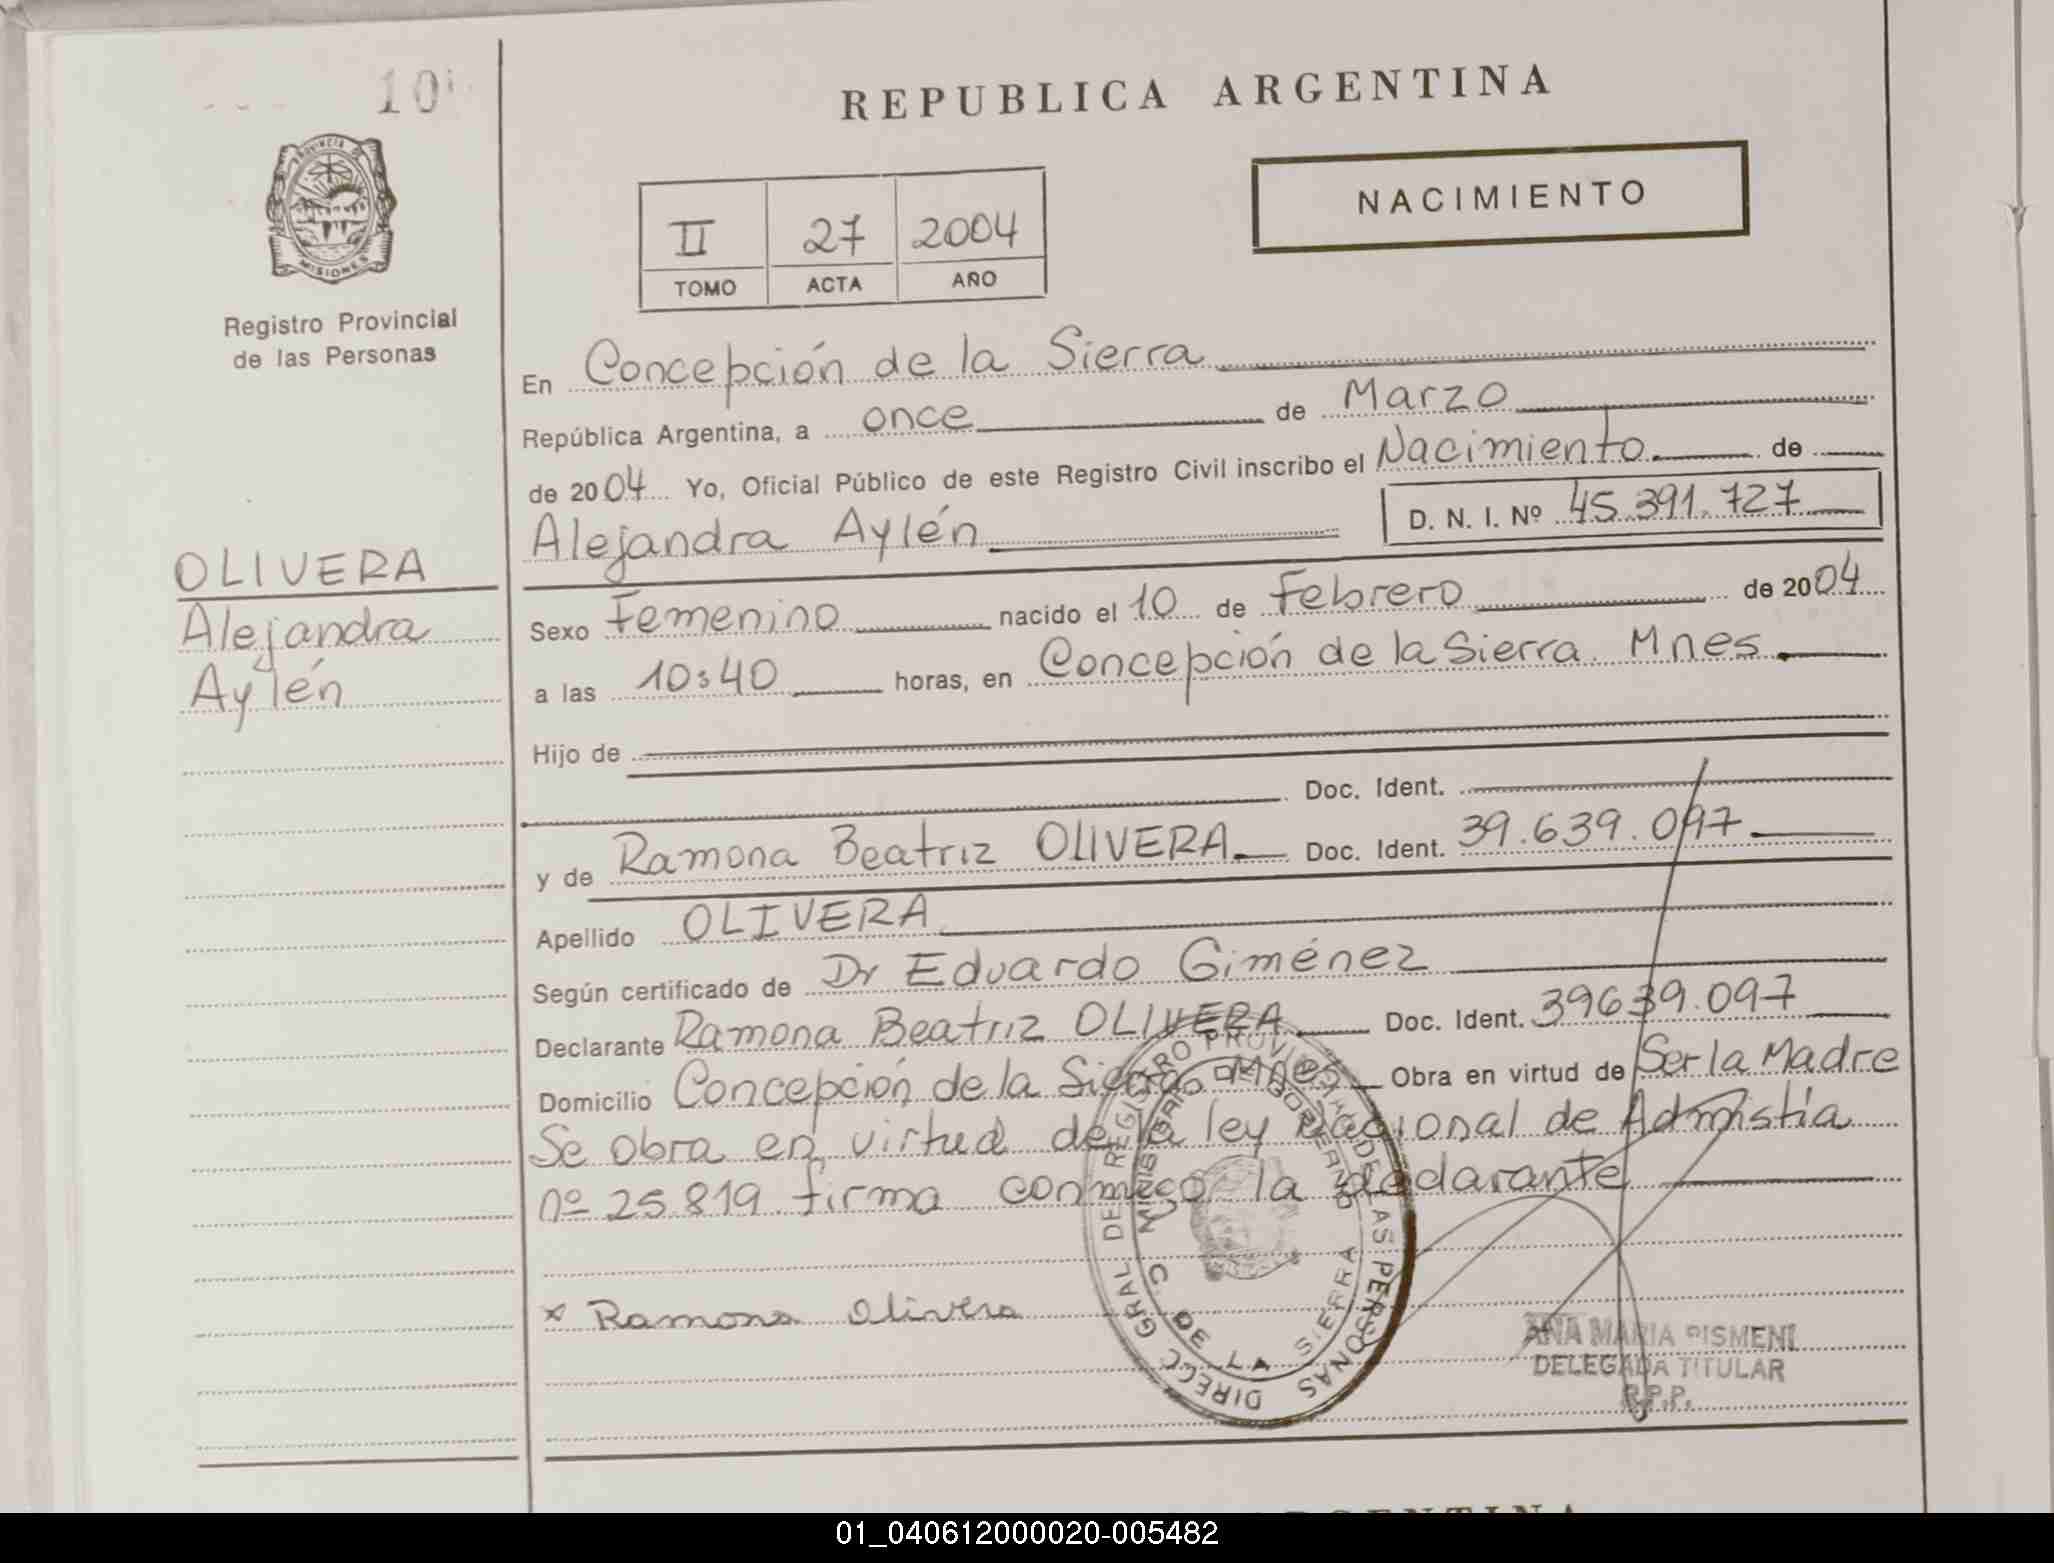 10
REPUBLICA ARGENTINA
PROVINCIA DE
MISIONES
Registro Provincial
de las Personas
II 27 2004
TOMO ACTA AÑO
NACIMIENTO
En Concepción de la Sierra
República Argentina, a once de Marzo
de 2004 Yo, Oficial Público de este Registro Civil inscribo el Nacimiento de
Alejandra Aylén D. N. I. Nº 45.391.727
OLIVERA
Alejandra
Aylén
Sexo Femenino nacido el 10 de Febrero de 2004
a las 10:40 horas, en Concepción de la Sierra. Mnes.
Hijo de
Doc. Ident.
y de Ramona Beatriz OLIVERA Doc. Ident. 39.639.097
Apellido OLIVERA
Según certificado de Dr Eduardo Giménez
Declarante Ramona Beatriz OLIVERA Doc. Ident. 39639.097
Domicilio Concepción de la Sierra Mnes Obra en virtud de Ser la Madre
Se obra en virtud de la ley nacional de Admistía
nº 25.819. firma conmigo la declarante
x Ramona Olivera
DIRECC. GRAL DE REGISTRO PROVINCIAL DE LAS PERSONAS
MINISTERIO DE GOBIERNO
C. DE LA SIERRA
ANA MARIA PISMENI
DELEGADA TITULAR
R.P.P.
ARGENTINA
01_040612000020-005482